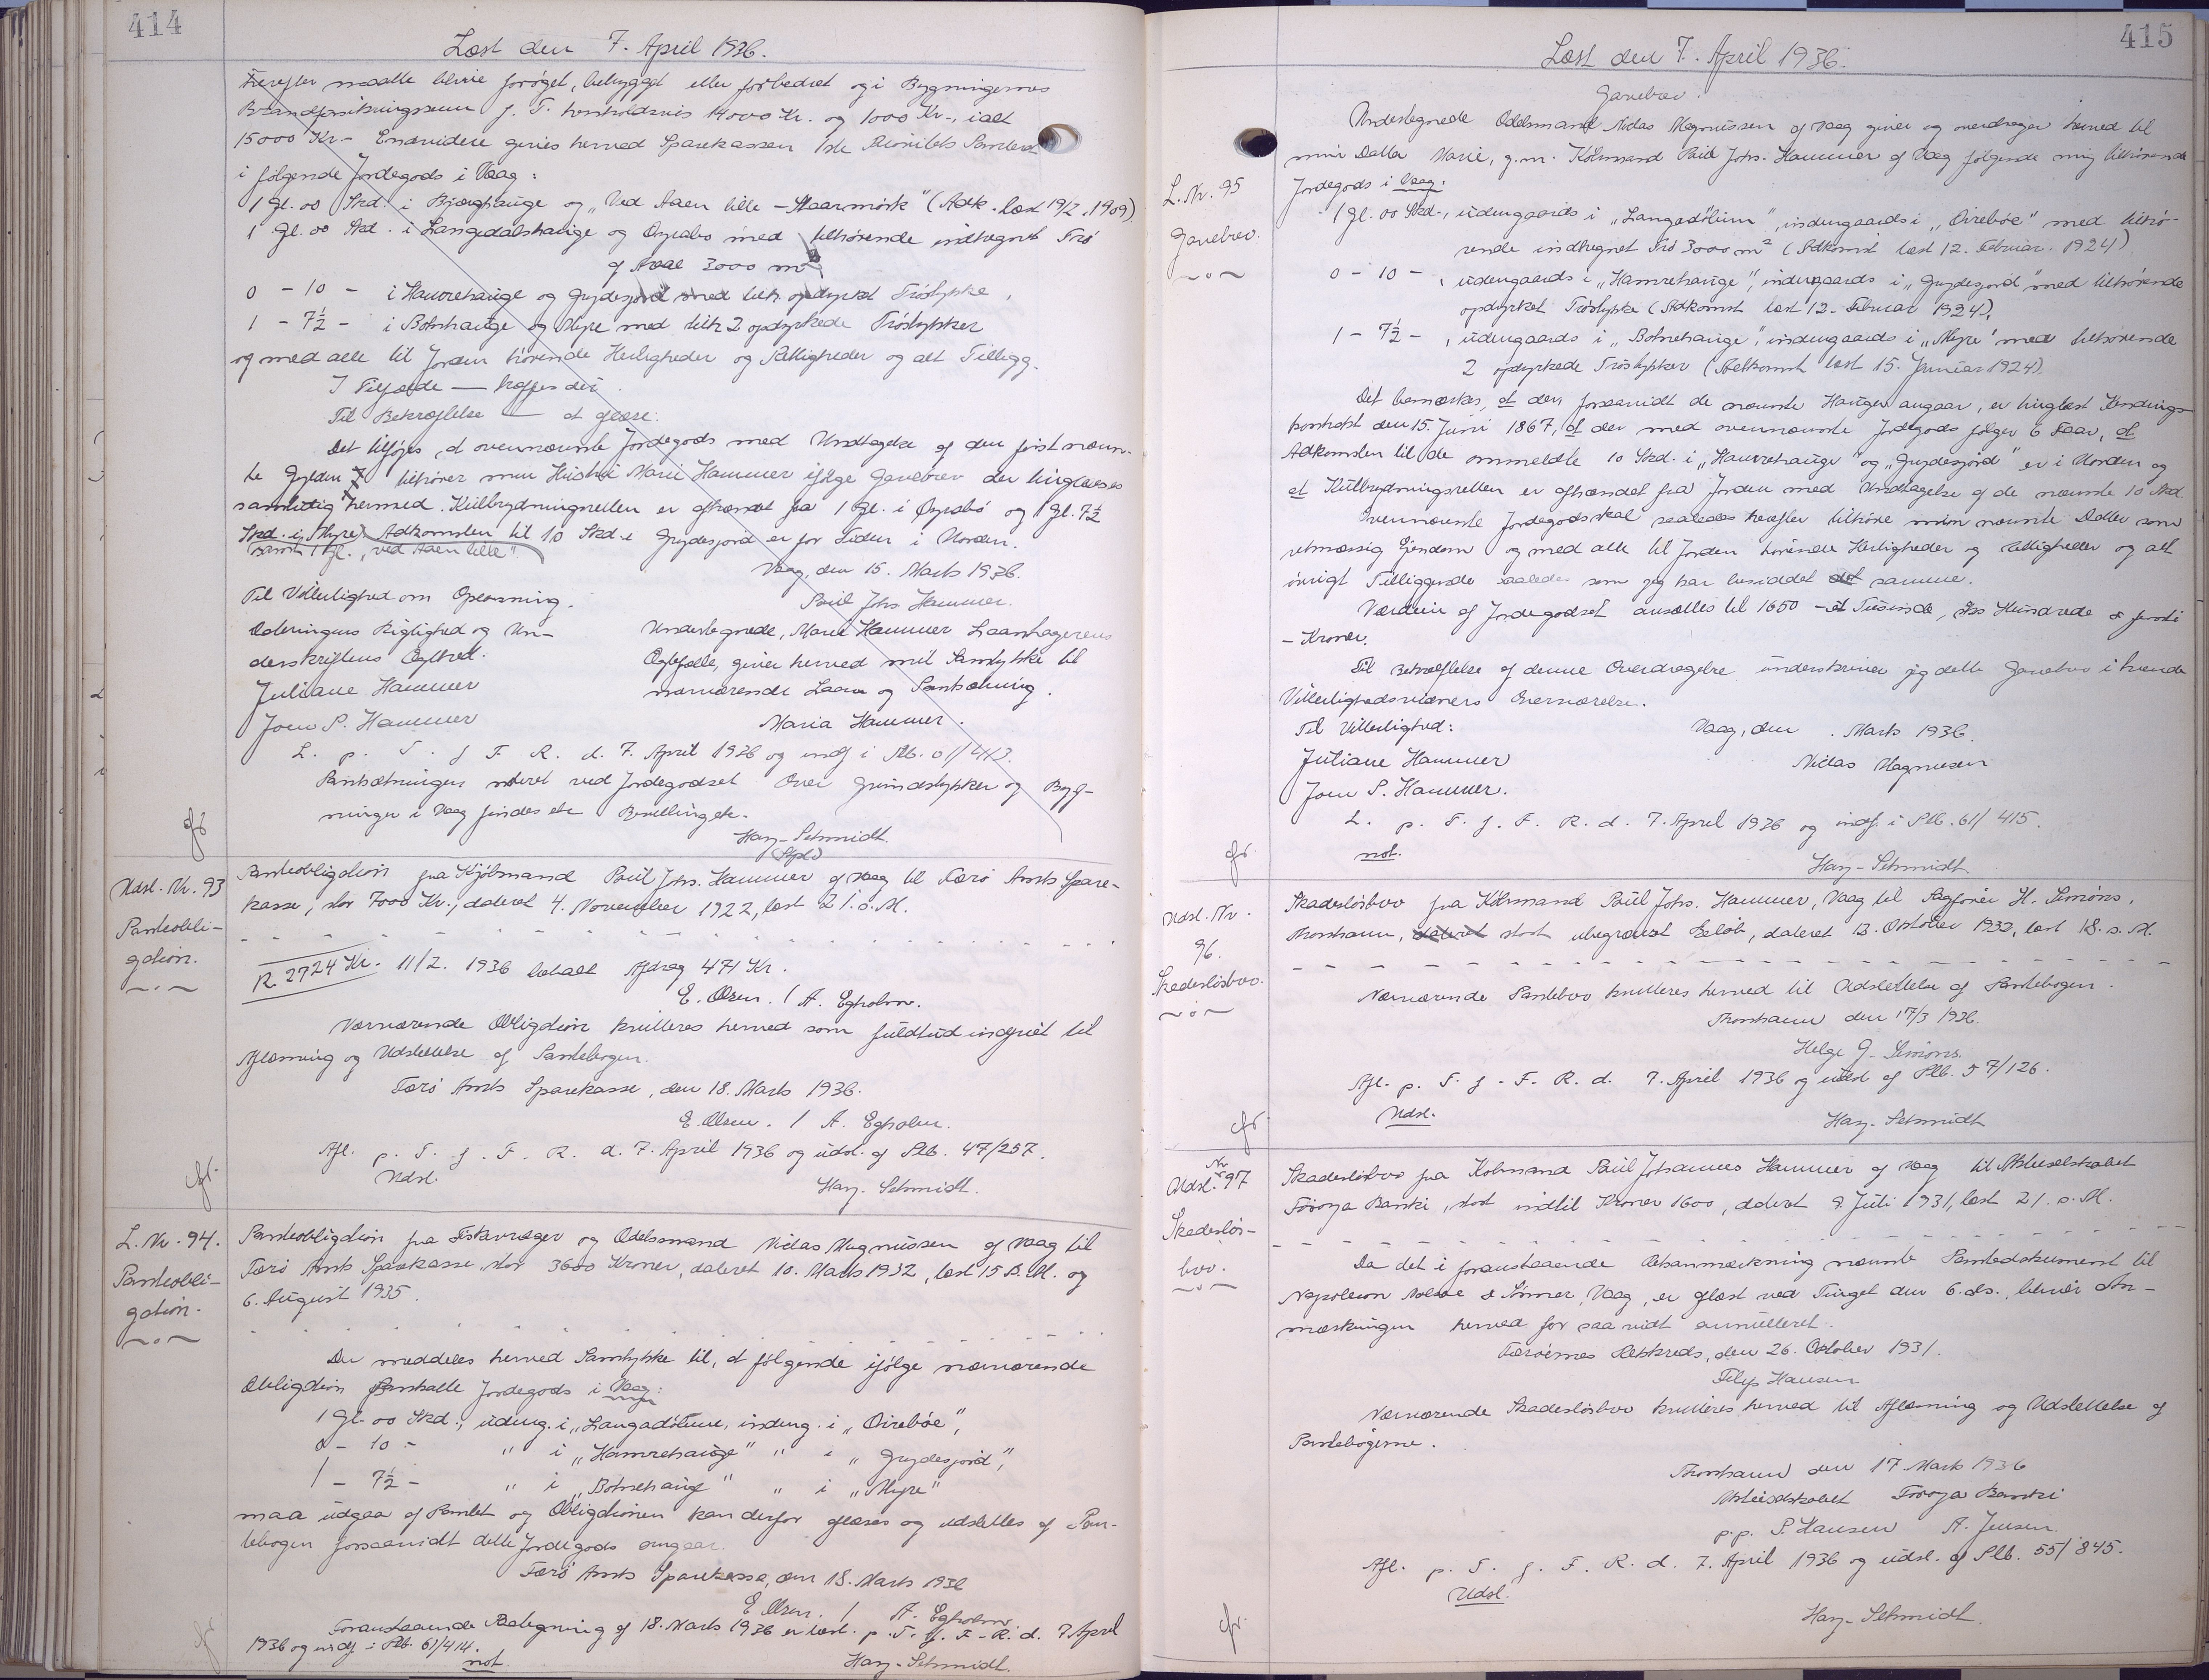 414
Læst den 7. April 1936.
Herefter maatte blive forøget, bebygget eller forbedret og i Bygningernes
Brandforsikringssum f. T. henholdsvis 14000 Kr. og 1000 Kr., ialt
15000 Kr. Endvidere gives herved Sparekassen 1ste Prioritets Panteret
i følgende Jordegods i Vaag:
1 Gl. 00 Skd. i Bjærghauge og "Ved Aaen lille - Skaarmørk" (Adk. læst 19/2 1909)
1 Gl. 00 Skd. i Langedalshauge og Øyrabø med tilhørende indhegnet Trø
af Areal 3000 m²
0 - 10 - i Hamrehauge og Grydesjord med tilh. opdyrket Tröstykke,
1 - 7½ - i Botnhauge og Myre med tilh. 2 opdyrkede Tröstykker
og med alle til Jorden hørende Herligheder og Rettigheder og alt Tillegg.
I Tilfælde — træffes dei
Til Bekræftelse — at aflæse.
Det tilføjes, at ovennævnte Jordegods med Undtagelse af den først nævn-
te Gylden tilhører min Hustru Marie Hammer ifølge Gavebrev der tinglæses
samtidig hermed. Kulbrydningsretten er afhændet fra 1 Gl. i Øyrabø og 1 Gl. 7½
Skd. i "Myre" Adkomsten til 10 Skd. i Grydesjord er for Tiden i Uorden.
samt 1 Gl. "ved Aaen lille"
Vaag, den 15. Marts 1936.
Til Vitterlighed om Oplæsning,
Poul Johs Hammer.
Dateringens Rigtighed og Un-
derskriftens Ægthed.
Undertegnede, Marie Hammer Laantagerens
Ægtefælle, giver herved mit Samtykke til
nærværende Laan og Pantsætning.
Juliane Hammer
Joen P. Hammer
Maria Hammer.
L. p. T. f. F. R. d. 7. April 1936 og indf. i Plb. 61/413.
Pantsætningen noteret ved Jordegodset. Over Grundstykker og Byg-
ninger i Vaag findes ikke Bevillinger.
Harry Schmidt.
(Spl.)
Udsl. Nr. 93
Panteobli-
gation.
Panteobligation fra Kjøbmand Poul Johs. Hammer af Vaag til Færø Amts Spare-
kasse, stor 7000 Kr., dateret 4. November 1922, læst 21. s. M.
R. 2724 Kr. 11/2. 1936 betalt Afdrag 471 Kr.
E. Olsen. / A. Egholm.
Nærværende Obligation kvitteres herved som fuldtud indfriet til
Aflæsning og Udslettelse af Pantebogen.
Færø Amts Sparekasse, den 18. Marts 1936.
E. Olsen. / A. Egholm.
Afl. p. T. f. F. R. d. 7. April 1936 og udsl. af Plb. 47/257.
Udsl.
Harry Schmidt.
L. Nr. 94.
Panteobli-
gation.
Panteobligation fra Fiskevrager og Odelsmand Niclas Magnussen af Vaag til
Færø Amts Sparekasse stor 3600 Kroner, dateret 10. Marts 1932, læst 15 s. M. og
6. August 1935.
Der meddeles herved Samtykke til, at følgende ifølge nærværende
Obligation pantsatte Jordegods i Vaag:
1 Gl. 00 Skd., udeng. i "Langadölum, indeng. i "Oirebøe",
0 - 10 - " i "Hamrehauge" " i "Grydesjord",
1 - 7½ - " i "Botnehauge" " i "Myre"
maa udgaa af Pantet og Obligationen kan derfor aflæses og udslettes af Pan-
tebogen forsaavidt dette Jordegods angaar.
Færø Amts Sparekasse, den 18. Marts 1936
E. Olsen. / A. Egholm
Foranstaaende Paategning af 18. Marts 1936 er læst p. T. f. F. R. d. 7 April
1936 og indf. i Plb. 61/414.
not.
Harry Schmidt.
415
Læst den 7. April 1936.
L. Nr. 95
Gavebrev.
Gavebrev.
Undertegnede Odelsmand Niclas Magnussen af Vaag giver og overdrager herved til
min Datter Marie, g.m. Købmand Poul Johs. Hammer af Vaag følgende mig tilhørende
Jordegods i Vaag:
1 Gl. 00 Skd., udengaards i "Langadölum", indengaards i "Oirebøe" med tilhø-
rende indhegnet Trø 3000 m² (Adkomst læst 12. Februar 1924)
0 - 10 -, udengaards i "Hamrehauge", indengaards i "Grydesjord" med tilhørende
opdyrket Tröstykke (Adkomst læst 12. Februar 1924),
1 - 7½ -, udengaards i "Botnehauge", indengaards i "Myre" med tilhørende
2 opdyrkede Tröstykker (Adkomst læst 15. Januar 1924).
Det bemærkes, at der, forsaavidt de nævnte Hauger angaar, er tinglæst Kendings-
kontrakt den 15. Juni 1867, at der med ovennævnte Jordegods følger 6 Faar, at
Adkomsten til de ommeldte 10 Skd. i "Hamrehauge" og "Grydesjord" er i Uorden og
at Kulbrydningsretten er afhændet fra Jorden med Undtagelse af de nævnte 10 Skd.
Ovennævnte Jordegods skal saaledes herefter tilhøre min nævnte Datter som
retmæssig Ejendom og med alle til Jorden hørende Herligheder og Rettigheder og alt
øvrigt Tilliggende saaledes som jeg har besiddet det samme.
Værdien af Jordegodset ansættes til 1650 - et Tusinde, Sex Hundrede & femti
- Kroner.
Til Bekræftelse af denne Overdragelse underskriver jeg dette Gavebrev i tvende
Vitterlighedsvidners Overværelse.
Til Vitterlighed:
Vaag, den . Marts 1936.
Juliane Hammer
Niclas Magnusen
Joen P. Hammer.
L. p. T. f. F. R. d. 7. April 1936 og indf. i Plb. 61/415.
not.
Harry Schmidt.
Udsl. Nr.
96.
Skadesløsbrev.
Skadesløsbrev fra Købmand Poul Johs. Hammer, Vaag til Sagfører H. Simóns,
Thorshavn, dateret stort ubegrænset Beløb, dateret 13. Oktober 1932, læst 18. s. M.
Nærværende Pantebrev kvitteres herved til Udslettelse af Pantebogen.
Thorshavn den 17/3 1936.
Helge G. Simóns.
Afl. p. T. f. F. R. d. 7. April 1936 og udsl. af Plb. 57/126.
Udsl.
Harry Schmidt
Udsl. Nr 97
Skadesløs-
brev.
Skadesløsbrev fra Købmand Poul Johannes Hammer af Vaag til Aktieselskabet
Føroya Banki, stort indtil Kroner 1600, dateret 9. Juli 1931, læst 21. s. M.
Da det i foranstaaende Retsanmærkning nævnte Pantedokument til
Napoleon Nolsøe & Sønner, Vaag, er aflæst ved Tinget den 6. ds., bliver An-
mærkningen herved for saa vidt annulleret.
Færøernes Retskreds, den 26. Oktober 1931.
Filip Hansen
Nærværende Skadesløsbrev kvitteres herved til Aflæsning og Udslettelse af
Pantebøgerne.
Thorshavn den 17 Marts 1936
Aktieselskabet Føroya Banki
p.p. P. Hansen A. Jensen.
Afl. p. T. f. F. R. d. 7. April 1936 og udsl. af Plb. 55/845.
Udsl.
Harry Schmidt.